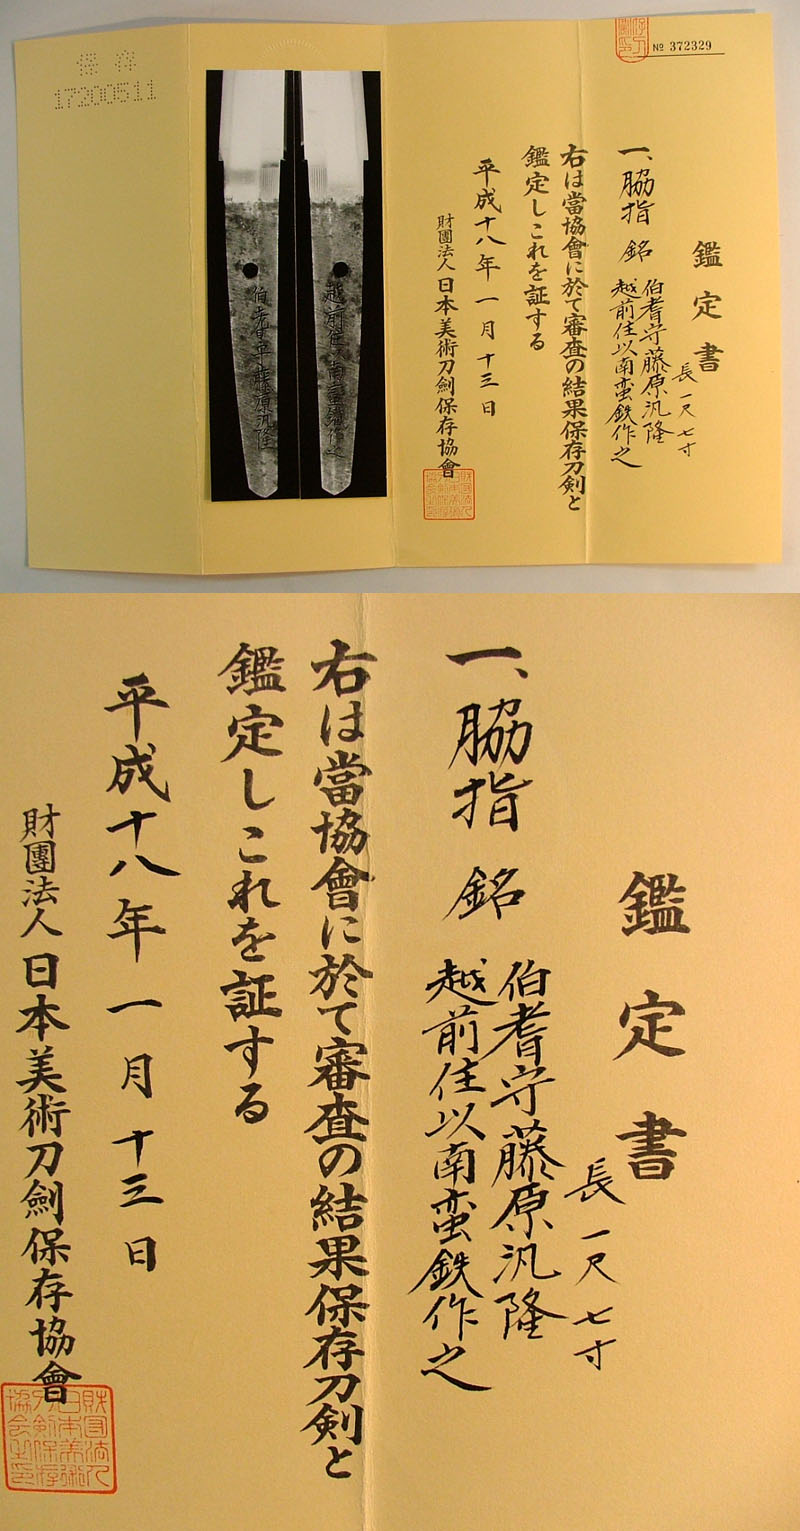 No 372329
鑑定書
一、脇指 銘
伯耆守藤原汎隆
越前住以南蛮鉄作之
長一尺七寸
右は當協會に於て審査の結果保存刀剣と
鑑定しこれを証する
平成十八年一月十三日
財團法人日本美術刀劍保存協會
保存
17200511
越前住以南蛮鉄作之
伯耆守藤原汎隆
鑑定書
長一尺七寸
一、脇指 銘
伯耆守藤原汎隆
越前住以南蛮鉄作之
右は當協會に於て審査の結果保存刀剣と
鑑定しこれを証する
平成十八年一月十三日
財團法人日本美術刀劍保存協會